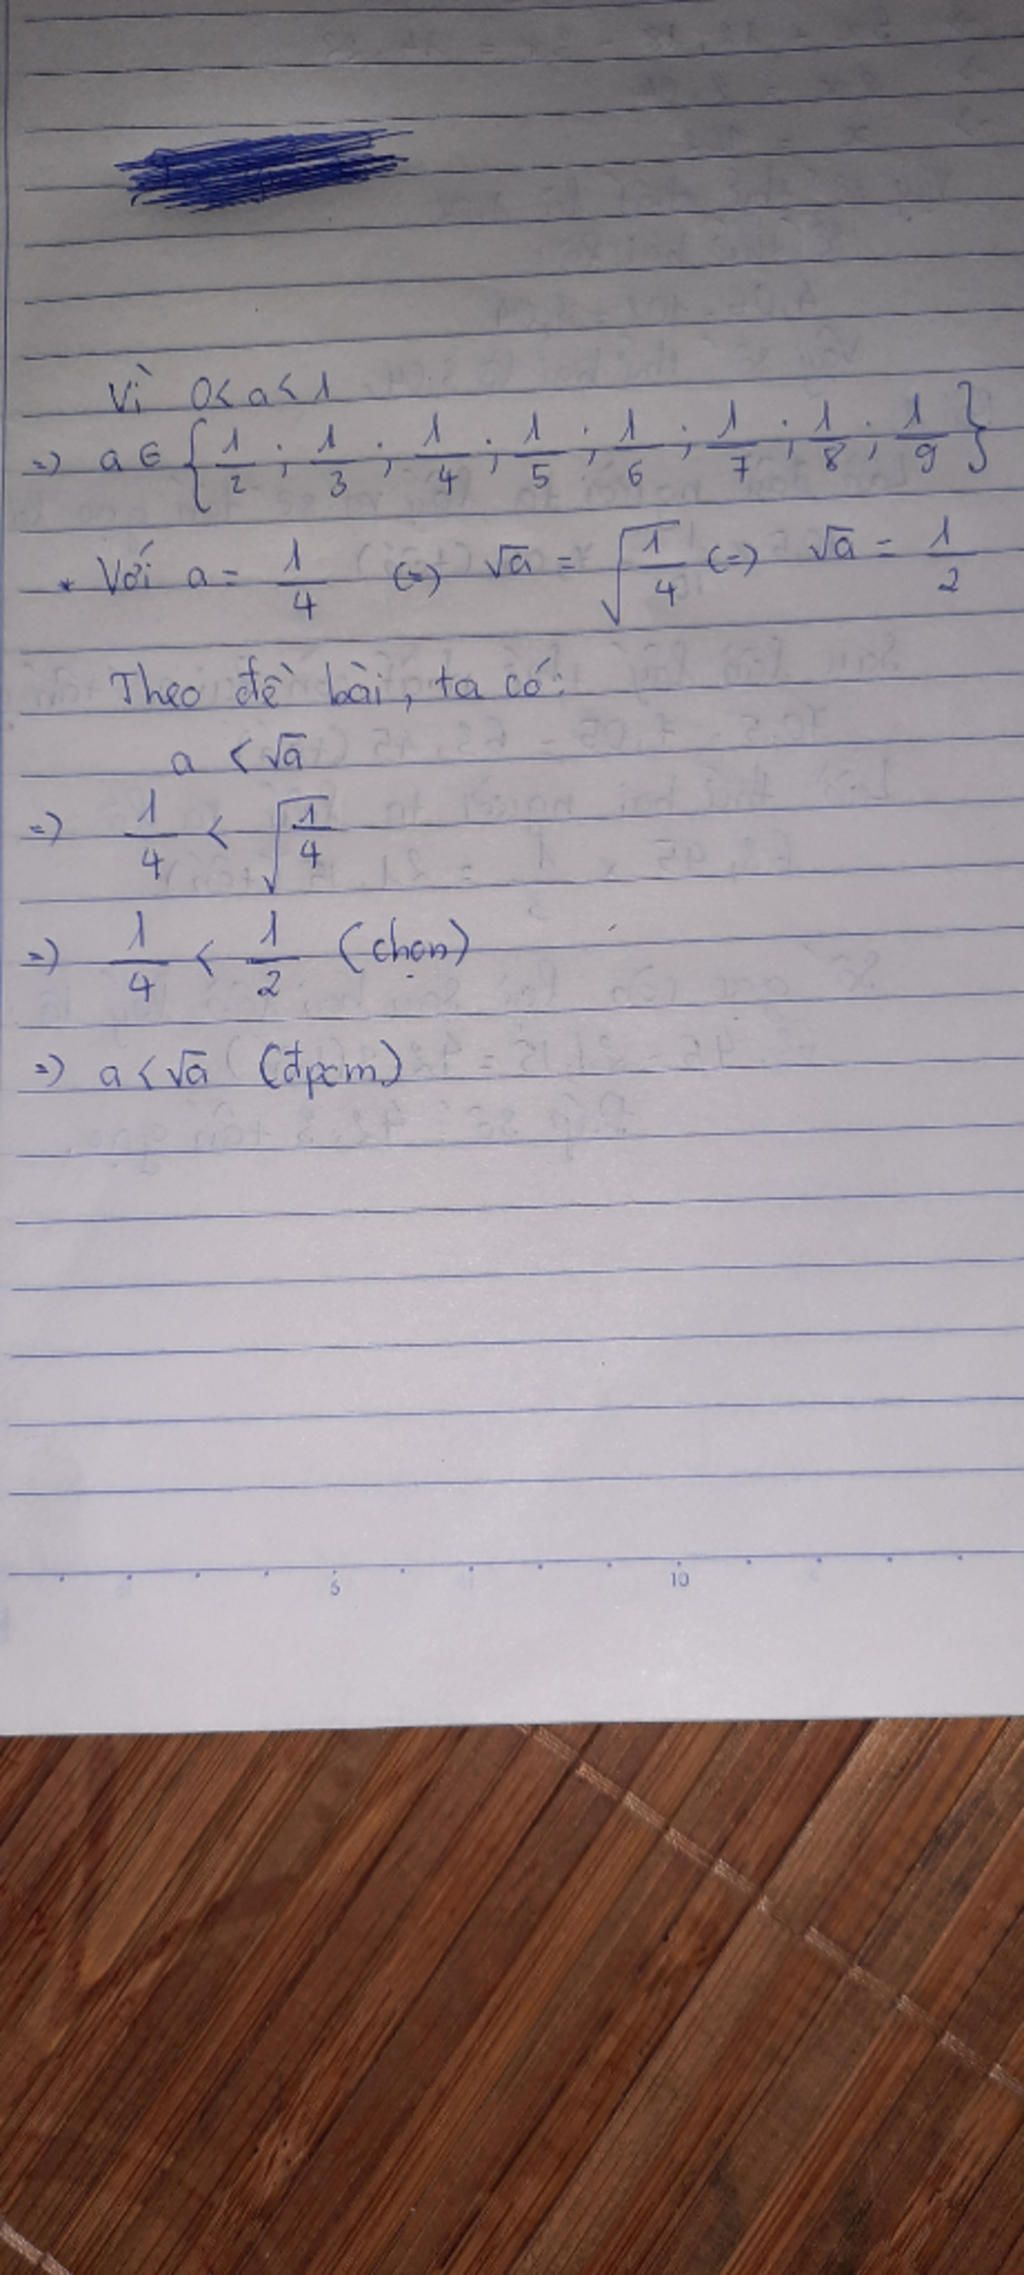 Vì 0 < a < 1
=> a ∈ { 1/2 ; 1/3 ; 1/4 ; 1/5 ; 1/6 ; 1/7 ; 1/8 ; 1/9 }
* Với a = 1/4 (=) √a = √(1/4) (=) √a = 1/2
Theo đề bài, ta có:
a < √a
=> 1/4 < √(1/4)
=> 1/4 < 1/2 (chọn)
=> a < √a (đpcm)
5 10